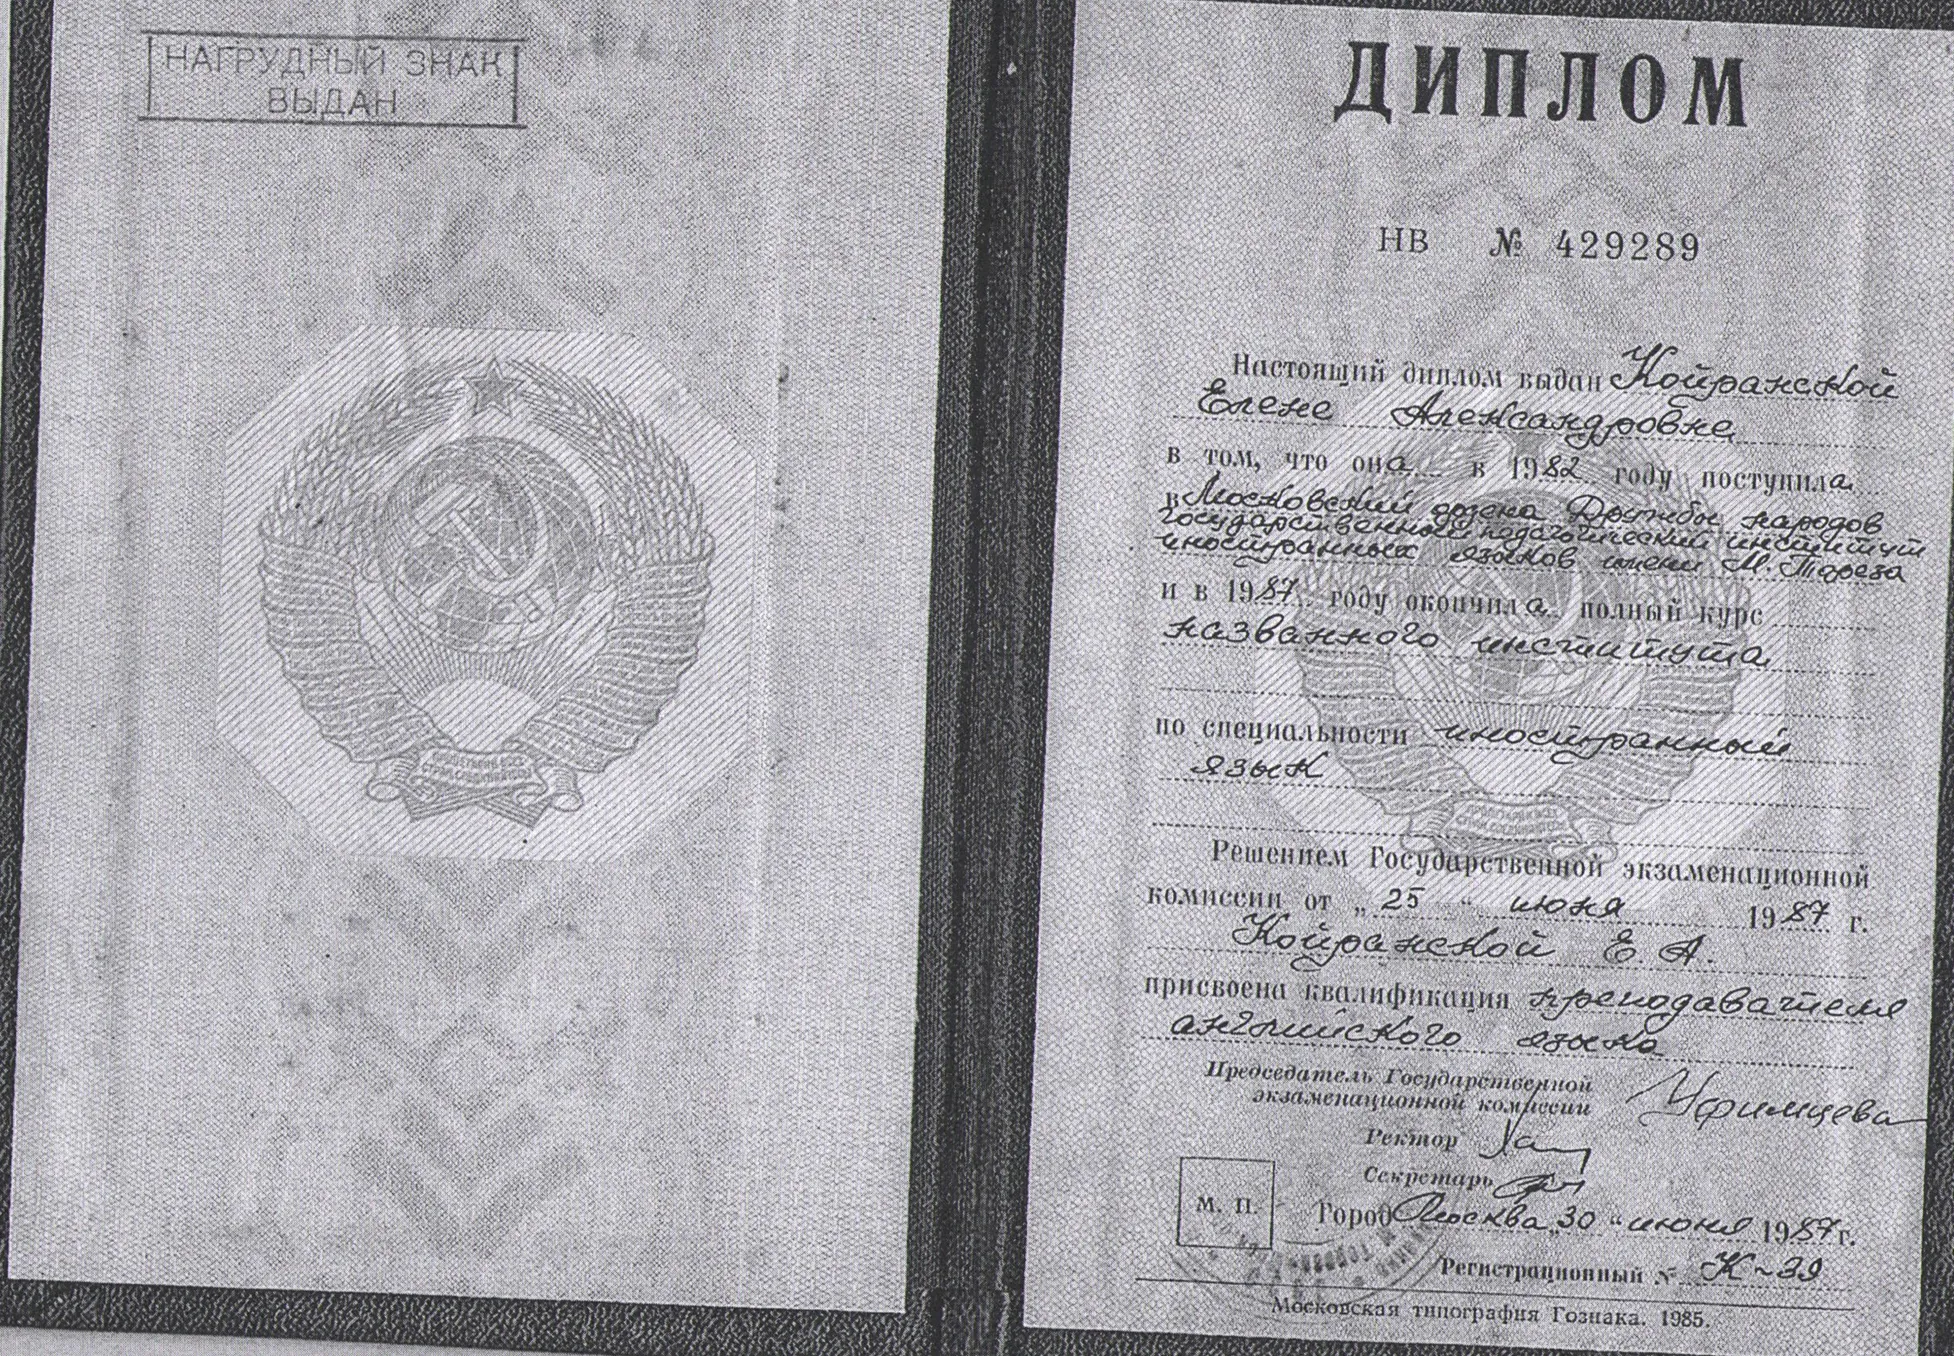 НАГРУДНЫЙ ЗНАК
ВЫДАН
ДИПЛОМ
НВ № 429289
Настоящий диплом выдан Койранской
Елене Александровне
в том, что она в 1982 году поступила
в Московский ордена Дружбы народов
государственный педагогический институт
иностранных языков имени М. Тореза
и в 1987 году окончила полный курс
названного института
по специальности иностранный
язык
Решением Государственной экзаменационной
комиссии от „25“ июня 1987 г.
Койранской Е. А.
присвоена квалификация преподавателя
английского языка
Председатель Государственной
экзаменационной комиссии Уфимцева
Ректор
Секретарь
М. П.
Город Москва „30“ июня 1987 г.
Регистрационный № К-39
Московская типография Гознака. 1985.